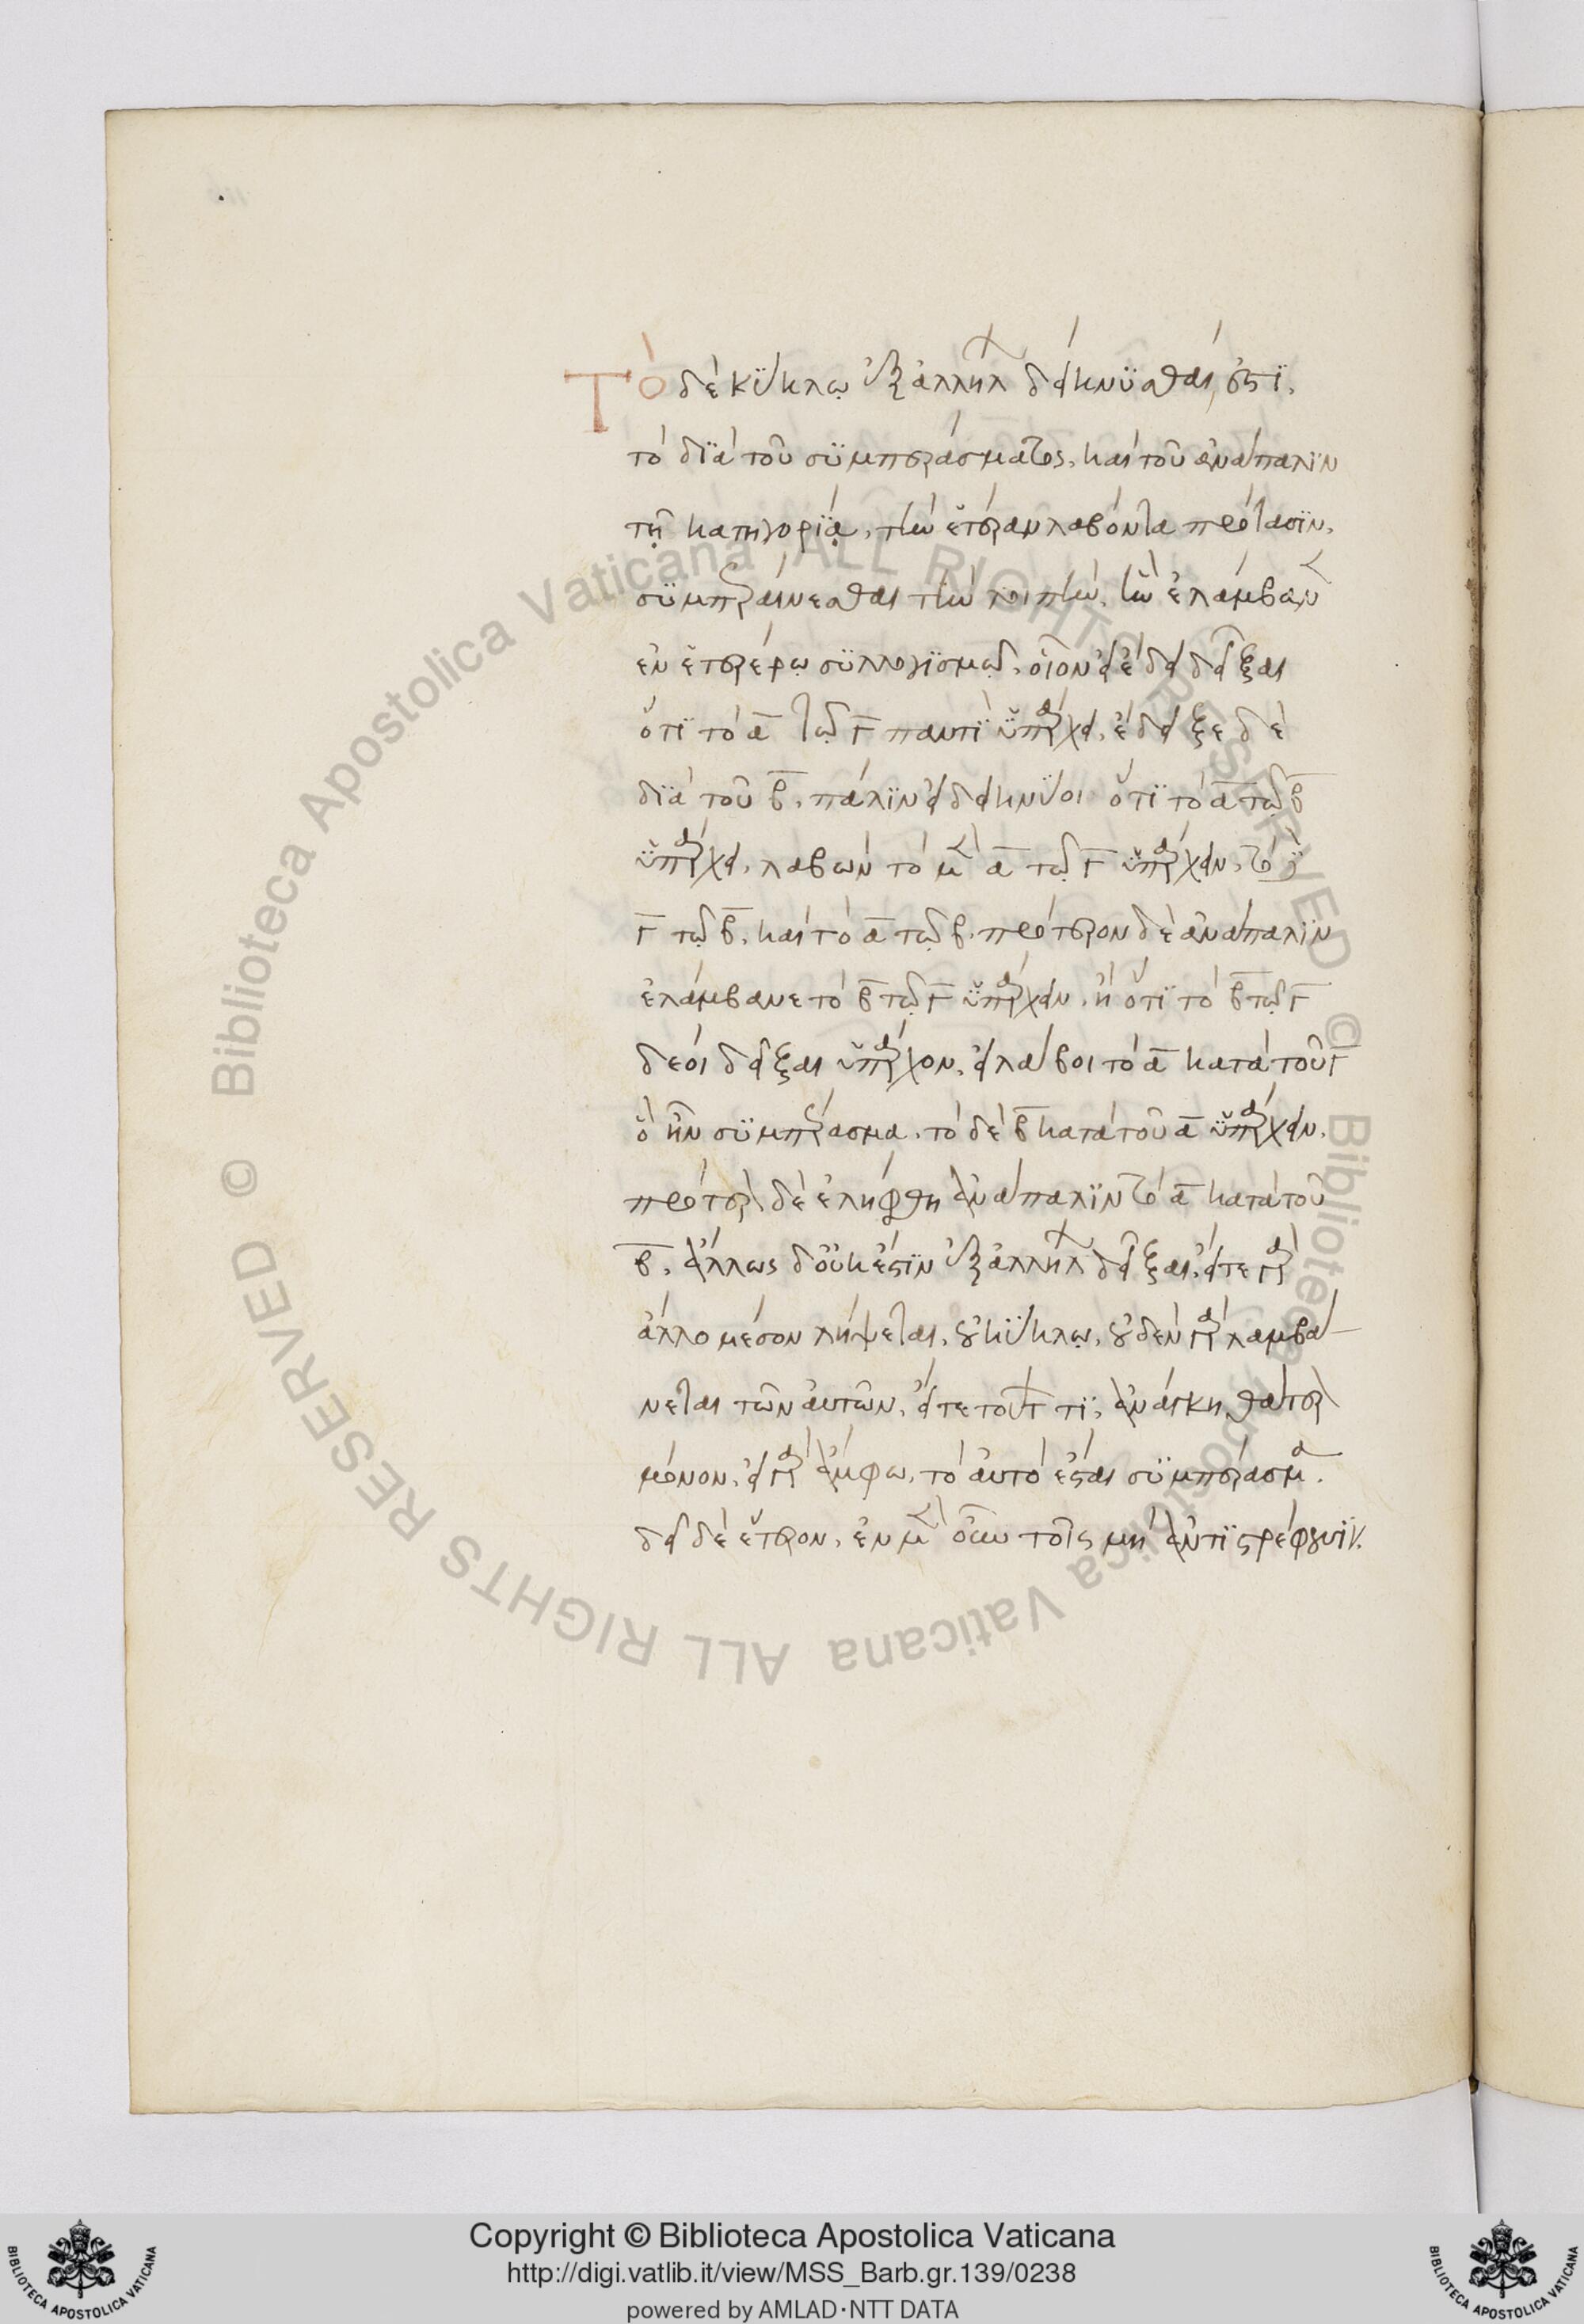 Τὸ δὲ κύκλῳ ἐξ ἀλλήλ δείκνυσθαι, ἐστὶ.
τὸ διὰ τοῦ συμπεράσματος, καὶ τοῦ ἀνάπαλιν
τῇ κατηγορίᾳ, τὴν ἑτέραν λαβόντα πρότασιν,
συμπεράνεσθαι τὴν λοιπὴν, ἣν ἐλάμβανεν
ἐν ἑτέρῳ συλλογισμῷ. οἷον εἰ ἔδει δεῖξαι
ὅτι τὸ α τῷ γ παντὶ ὑπάρχει. ἔδειξε δὲ
διὰ τοῦ β. πάλιν εἰ δεικνύοι ὅτι τὸ α τῷ β
ὑπάρχει, λαβὼν τὸ μὲν α τῷ γ ὑπάρχειν, τὸ δὲ
γ τῷ β. καὶ τὸ α τῷ β. πρότερον δὲ ἀνάπαλιν
ἐλάμβανε τὸ β τῷ γ ὑπάρχειν. ἢ ὅτι τὸ β τῷ γ
δέοι δεῖξαι ὑπάρχον, εἰ λάβοι τὸ α κατὰ τοῦ γ
ὃ ἦν συμπέρασμα. τὸ δὲ β κατὰ τοῦ α ὑπάρχειν.
πρότερον δὲ ἐλήφθη ἀνάπαλιν τὸ α κατὰ τοῦ
β. ἄλλως δ' οὐκ ἔστιν ἐξ ἀλλήλ δεῖξαι. εἴτε γὰρ
ἄλλο μέσον λήψεται, οὐ κύκλῳ. οὐδὲν γὰρ λαμβά-
νεται τῶν αὐτῶν. εἴτε τούτ τι, ἀνάγκη θάτερον
μόνον. εἰ γὰρ ἄμφω, τὸ αὐτὸ ἔσται συμπέρασμα.
δεῖ δὲ ἕτερον. ἐν μὲν οὖν τοῖς μὴ ἀντιστρέφουσιν.
Copyright © Biblioteca Apostolica Vaticana
http://digi.vatlib.it/view/MSS_Barb.gr.139/0238
powered by AMLAD·NTT DATA
BIBLIOTECA APOSTOLICA VATICANA
BIBLIOTECA APOSTOLICA VATICANA
© Biblioteca Apostolica Vaticana ALL RIGHTS RESERVED
© Biblioteca Apostolica Vaticana ALL RIGHTS RESERVED